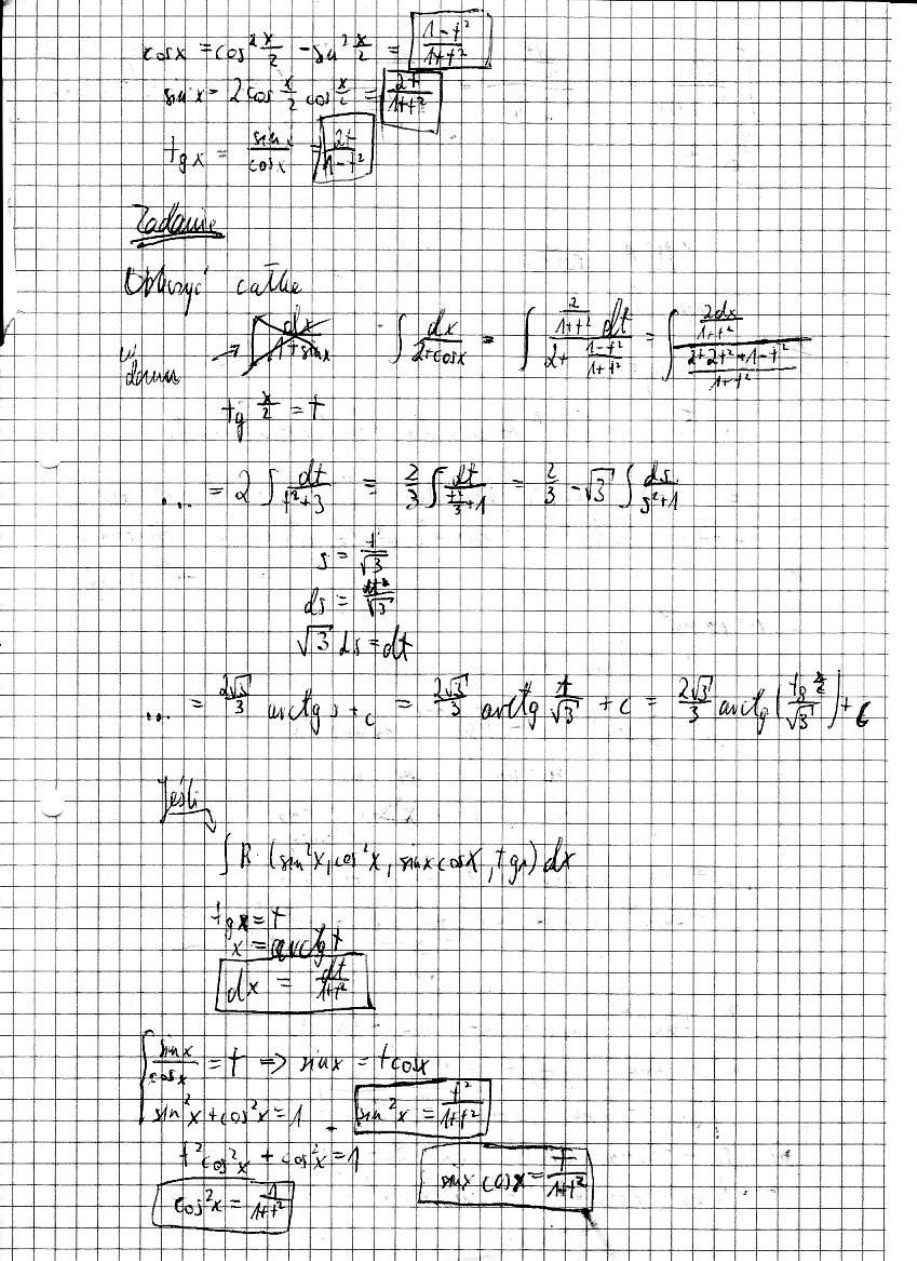 cos x = cos² x/2 - sin² x/2 = (1-t²)/(1+t²)
sin x = 2 cos x/2 cos x/2 = 2t/(1+t²)
tg x = sin x/cos x = 2t/(1-t²)
Zadanie
Obliczyć całke
w domu → ∫ dx/(1+sin x) ∫ dx/(2+cos x) = ∫ (2/(1+t²) dt)/(2+(1-t²)/(1+t²)) = ∫ (2dx/(1+t²))/((2+2t²+1-t²)/(1+t²))
tg x/2 = t
... = 2 ∫ dt/(t²+3) = 2/3 ∫ dt/(t²/3+1) = 2/3 · √3 ∫ ds/(s²+1)
s = t/√3
ds = dt/√3
√3 ds = dt
... = 2√3/3 arctg s + c = 2√3/3 arctg t/√3 + c = 2√3/3 arctg (tg x/2 / √3) + c
Jeśli
∫ R (sin²x, cos²x, sin x cos x, tg x) dx
tg x = t
x = arctg t
dx = dt/(1+t²)
{ sin x/cos x = t ⇒ sin x = t cos x
sin²x + cos²x = 1 sin²x = t²/(1+t²)
t² cos²x + cos²x = 1 sin x cos x = t/(1+t²)
cos²x = 1/(1+t²)